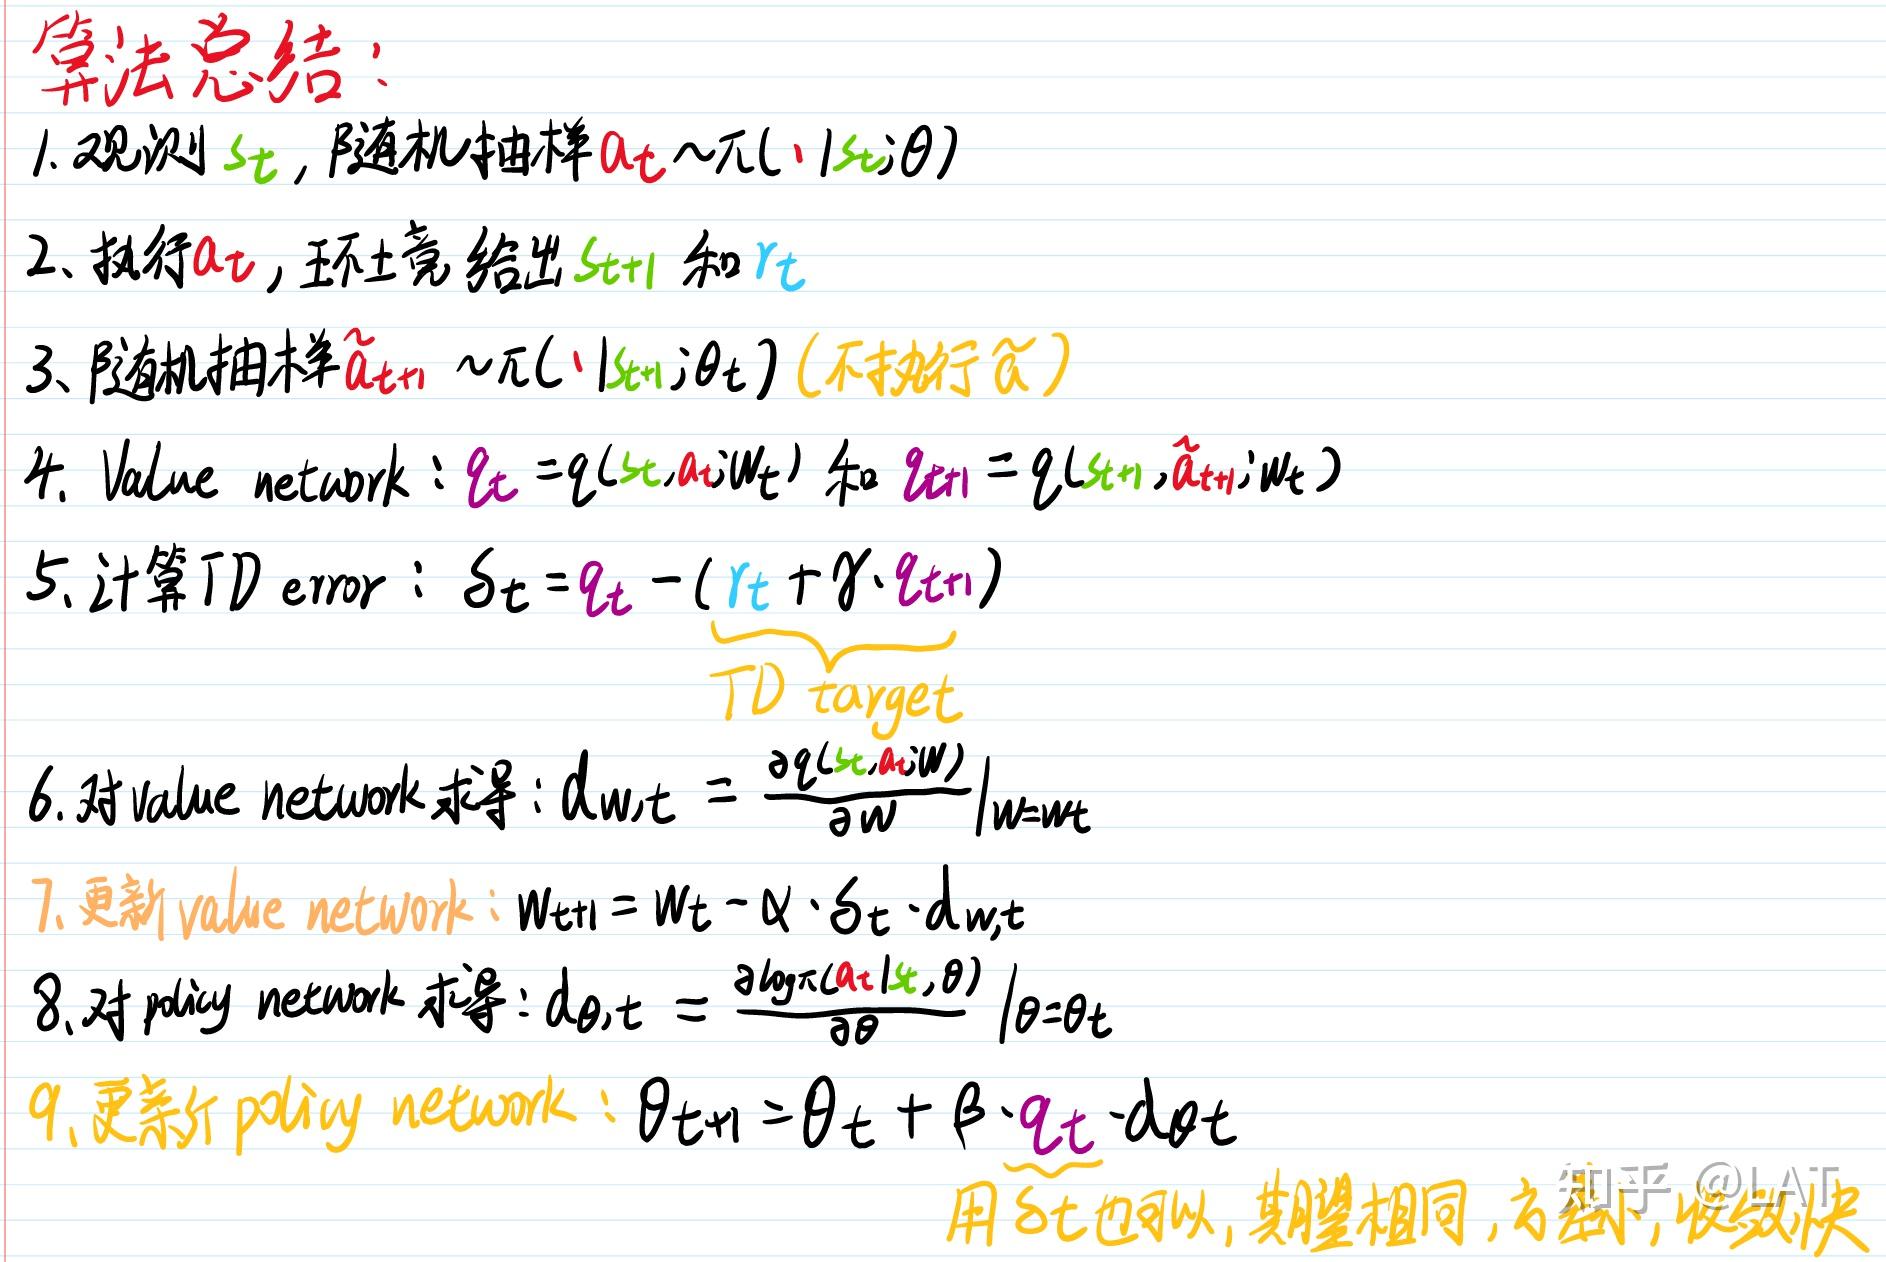 算法总结：
1. 观测 st，随机抽样 at ~ π(·|st;θ)
2、执行 at，环境给出 st+1 和 rt
3、随机抽样 ãt+1 ~ π(·|st+1;θt)（不执行 ã）
4. Value network：qt = q(st,at;Wt) 和 qt+1 = q(st+1,ãt+1;Wt)
5、计算TD error：δt = qt - (rt + γ·qt+1)
TD target
6. 对value network求导：dw,t = ∂q(st,at;W)/∂W |W=Wt
7、更新value network：Wt+1 = Wt - α·δt·dw,t
8、对policy network求导：dθ,t = ∂logπ(at|st,θ)/∂θ |θ=θt
9、更新policy network：θt+1 = θt + β·qt·dθt
用δt也可以，期望相同，方差小，收敛快
知乎 @LAT